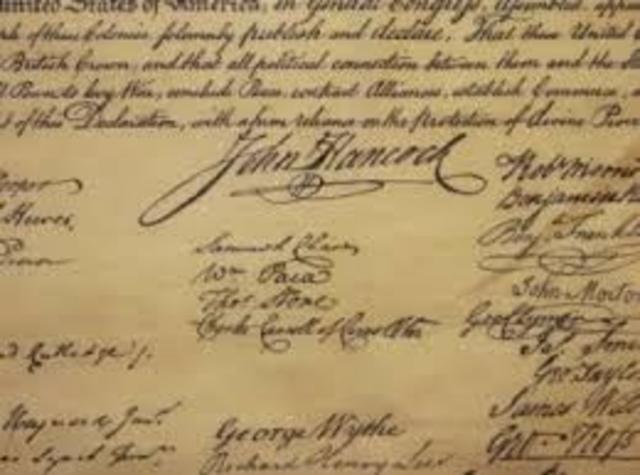 United States of America, in General Congress, Assembled,
of these Colonies, solemnly publish and declare, That these United
British Crown, and that all political connection between them and the
to levy War, conclude Peace, contract Alliances, establish Commerce,
of this Declaration, with a firm reliance on the protection of divine
John Hancock
Hooper
Hewes,
Penn
Samuel Chase
Wm Paca
Thos Stone
Charles Carroll of Carrollton
Robt Morris
Benjamin
Benj Franklin
John Morton
Geo Clymer
Jas Smith
Geo Taylor
James
Geo Ross
Rutledge
Heyward Junr
Lynch Junr
George Wythe
Richard Henry Lee